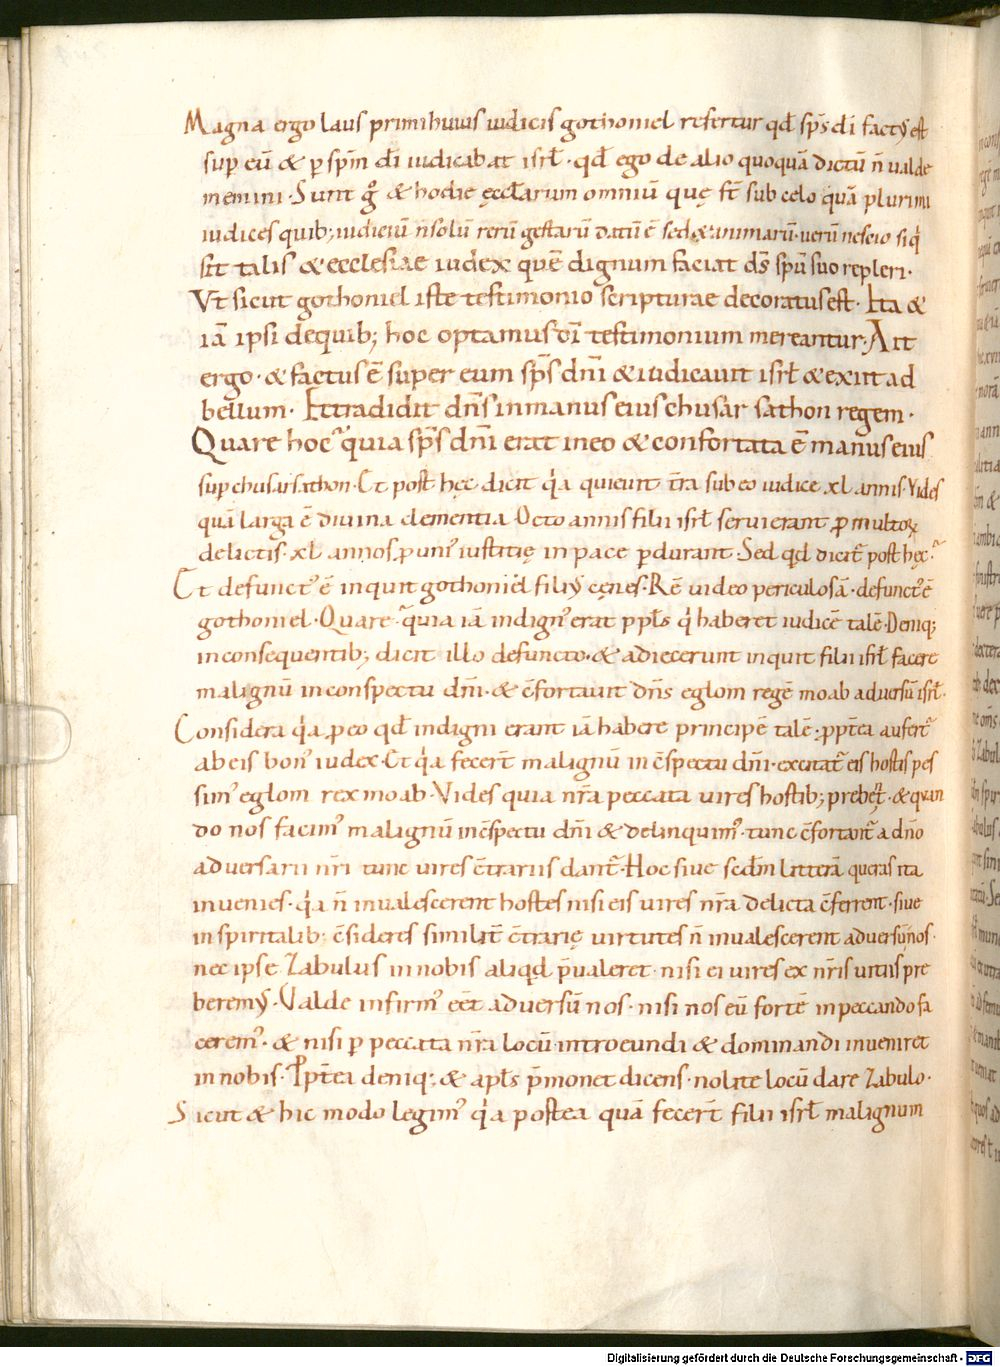 Magna ergo laus primi huius iudicis gothoniel refertur qđ sp̄s dī factꝰ est
sup eū & p sp̄m dī iudicabat isrł · qđ ego de alio quoquā dictū n̄ ualde
memini · Sunt gͦ & hodie ęccłarum omniū quę st̄ sub celo quā plurimi
iudices quib; iudiciū n̄ solū rerū gestarū datū ē sed & animarū · uerū nescio si qͥ
sit talis & ecclesiae iudex quē dignum faciat dš spū suo repleri ·
Vt sicut gothoniel iste testimonio scripturae decoratus est · Ita &
iā ipsi de quib; hoc optamus dī testimonium mereantur · Ait
ergo · & factus ē super eum sp̄s dn̄i & iudicauit isrł & exiit ad
bellum · Et tradidit dn̄s in manus eius chusar sathon regem ·
Quare hoc quia sp̄s dn̄i erat in eo & confortata ē manus eius
sup chusar sathon · Et post hęc dicit qͥa quieuit t̄ra sub eo iudice xl annis · Vides
quā larga ē diuina clementia · Octo annis filii isrł seruierant ꝓ multoꝝ
delictis · xl annos ꝓ uniꝰ iustitię in pace pdurant · Sed qđ dicit̄ post hęc ·
Et defunctꝰ ē inquit gothoniel filiꝰ cenes · Rē uideo periculosā · defunctꝰ ē
gothoniel · Quare quia iā indignꝰ erat ppłs qͥ haberet iudicē talē · Deniq;
in consequentib; dicit illo defuncto · & adiecerunt inquit filii isrł facere
malignū in conspectu dn̄i · & c̄fortauit dn̄s eglom regē moab aduersū isrł ·
Considera qͥa ꝓ eo qđ indigni erant iā habere principē talē · ꝓpt̄ea aufert̄
ab eis bonꝰ iudex · Et qͥa fecer̄t malignū in c̄spectu dn̄i · excitat̄ eis hostis pes
simꝰ eglom rex moab · Vides quia nr̄a peccata uires hostib; prebent · & quan
do nos facimꝰ malignū in c̄spectu dn̄i & delinquimꝰ · tunc c̄fortant̄ a dn̄o
aduersarii nr̄i tunc uires c̄trariis dant̄ · Hoc siue scđm litterā queras ita
inuenies · qͥa n̄ inualescerent hostes nisi eis uires nr̄a delicta c̄ferrent · siue
in spiritalib; c̄sideres similit̄ c̄trarię uirtutes n̄ inualescerent aduersū nos ·
nec ipse Zabulus in nobis aliqđ p̄ualeret · nisi ei uires ex nr̄is uitiis pre
beremꝰ · Valde infirmꝰ eēt aduersū nos · nisi nos eū fortē in peccando fa
ceremꝰ · & nisi p peccata nr̄a locū introeundi & dominandi inueniret
in nobis · Ppt̄ea deniq; & apłs p̄monet dicens · nolite locū dare Zabulo ·
Sicut & hic modo legimꝰ qͥa postea quā fecer̄t filii isrł malignum
Digitalisierung gefördert durch die Deutsche Forschungsgemeinschaft - DFG